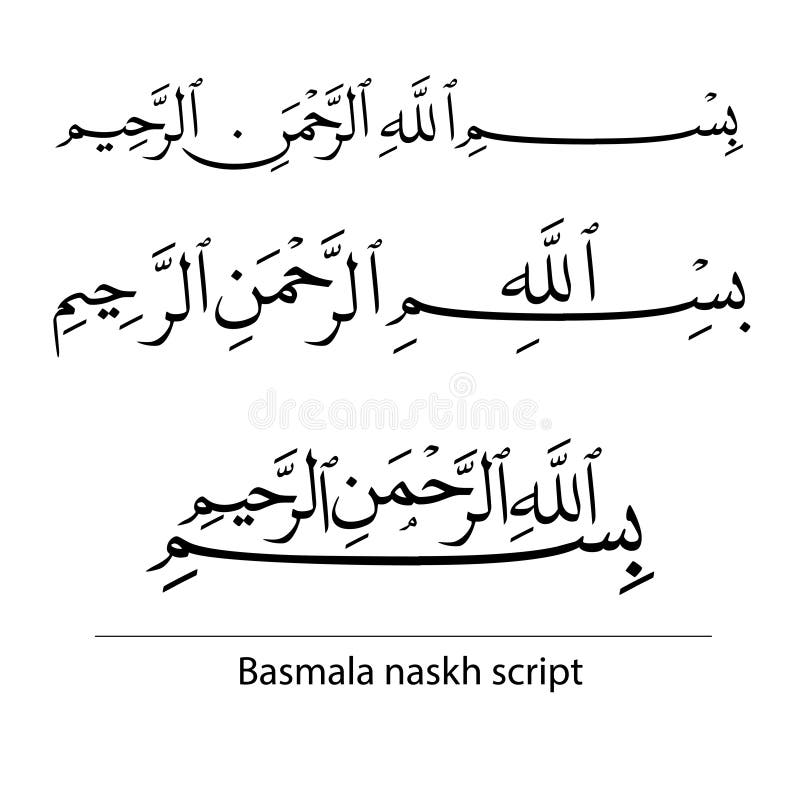 بِسْمِ ٱللَّهِ ٱلرَّحْمَنِ ٱلرَّحِيمِ
بِسْمِ ٱللَّهِ ٱلرَّحْمَنِ ٱلرَّحِيمِ
dreamstime
بِسْمِ ٱللَّهِ ٱلرَّحْمَنِ ٱلرَّحِيمِ
Basmala naskh script